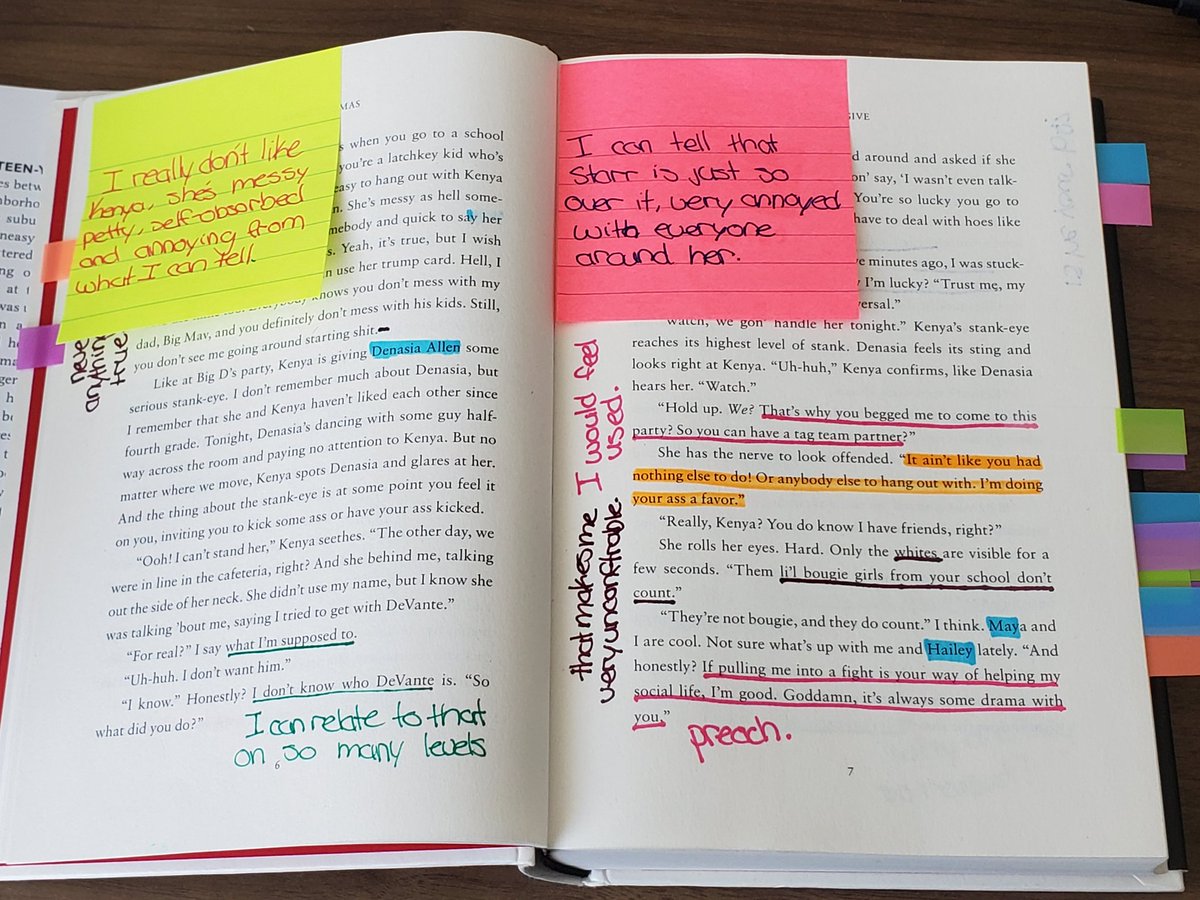 MAS
I really don't like
Kenya, she's messy
petty, self-absorbed
and annoying from
what I can tell.
when you go to a school
you're a latchkey kid who's
easy to hang out with Kenya
She's messy as hell some-
mebody and quick to say her
Yeah, it's true, but I wish
n use her trump card. Hell, I
knows you don't mess with my
dad, Big Mav, and you definitely don't mess with his kids. Still,
you don't see me going around starting shit.
Like at Big D's party, Kenya is giving Denasia Allen some
serious stank-eye. I don't remember much about Denasia, but
I remember that she and Kenya haven't liked each other since
fourth grade. Tonight, Denasia's dancing with some guy half-
way across the room and paying no attention to Kenya. But no
matter where we move, Kenya spots Denasia and glares at her.
And the thing about the stank-eye is at some point you feel it
on you, inviting you to kick some ass or have your ass kicked.
"Ooh! I can't stand her," Kenya seethes. "The other day, we
were in line in the cafeteria, right? And she behind me, talking
out the side of her neck. She didn't use my name, but I know she
was talking 'bout me, saying I tried to get with DeVante."
"For real?" I say what I'm supposed to.
"Uh-huh. I don't want him."
"I know." Honestly? I don't know who DeVante is. "So
what did you do?"
I can relate to that
on so many levels
6
anything
true
I can tell that
Starr is just so
over it, very annoyed
with everyone
around her.
GIVE
d around and asked if she
on' say, 'I wasn't even talk-
You're so lucky you go to
have to deal with hoes like
ve minutes ago, I was stuck-
I'm lucky? "Trust me, my
versal."
watch, we gon' handle her tonight." Kenya's stank-eye
reaches its highest level of stank. Denasia feels its sting and
looks right at Kenya. "Uh-huh," Kenya confirms, like Denasia
hears her. "Watch."
"Hold up. We? That's why you begged me to come to this
party? So you can have a tag team partner?"
She has the nerve to look offended. "It ain't like you had
nothing else to do! Or anybody else to hang out with. I'm doing
your ass a favor."
"Really, Kenya? You do know I have friends, right?"
She rolls her eyes. Hard. Only the whites are visible for a
few seconds. "Them li'l bougie girls from your school don't
count."
"They're not bougie, and they do count." I think. Maya and
I are cool. Not sure what's up with me and Hailey lately. "And
honestly? If pulling me into a fight is your way of helping my
social life, I'm good. Goddamn, it's always some drama with
you."
preach.
7
that makes me
very unconftrable.
I would feel
used.